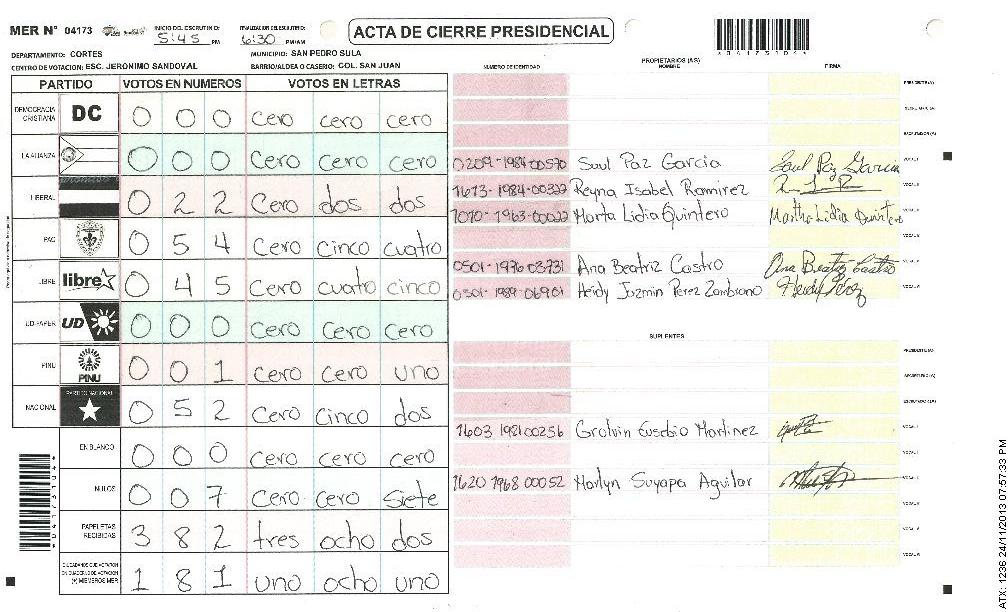 MER N° 04173 INICIO DEL ESCRUTINIO: 5:45 PM FINALIZACION DEL ESCRUTINIO: 6:30 PM/AM
ACTA DE CIERRE PRESIDENCIAL
DEPARTAMENTO: CORTES MUNICIPIO: SAN PEDRO SULA
CENTRO DE VOTACION: ESC. JERONIMO SANDOVAL BARRIO/ALDEA O CASERIO: COL. SAN JUAN
PARTIDO VOTOS EN NUMEROS VOTOS EN LETRAS
DEMOCRACIA CRISTIANA DC 0 0 0 cero cero cero
LA ALIANZA 0 0 0 cero cero cero
LIBERAL 0 2 2 cero dos dos
PAC 0 5 4 cero cinco cuatro
LIBRE libre 0 4 5 cero cuatro cinco
UD-FAPER UD 0 0 0 cero cero cero
PINU PINU 0 0 1 cero cero uno
NACIONAL PARTIDO NACIONAL 0 5 2 cero cinco dos
EN BLANCO 0 0 0 cero cero cero
NULOS 0 0 7 cero cero siete
PAPELETAS RECIBIDAS 3 8 2 tres ocho dos
CIUDADANOS QUE VOTARON EN CUADERNO DE VOTACION (+) MIEMBROS MER 1 8 1 uno ocho uno
PROPIETARIOS (AS)
NUMERO DE IDENTIDAD NOMBRE FIRMA
PRESIDENTE (A)
SECRETARIO (A)
ESCRUTADOR (A)
0209-1984-00570 Saul Paz Garcia Saul Paz Garcia VOCAL I
1613-1984-00322 Reyna Isabel Ramirez VOCAL II
1010-1963-00022 Marta Lidia Quintero Martha Lidia Quintero VOCAL III
VOCAL IV
0501-1976 03731 Ana Beatriz Castro Ana Beatriz Castro VOCAL V
0501-1989-06901 Heidy Jazmin Perez Zambrano Heidy Perez VOCAL VI
SUPLENTES
PRESIDENTE (A)
SECRETARIO (A)
ESCRUTADOR (A)
1603 1981 00256 Grolvin Eusebio Martinez VOCAL I
VOCAL II
1620 1968 00052 Marlyn Suyapa Aguilar VOCAL III
VOCAL IV
VOCAL V
VOCAL VI
ATX: 1236 24/11/2013 07:57:33 PM